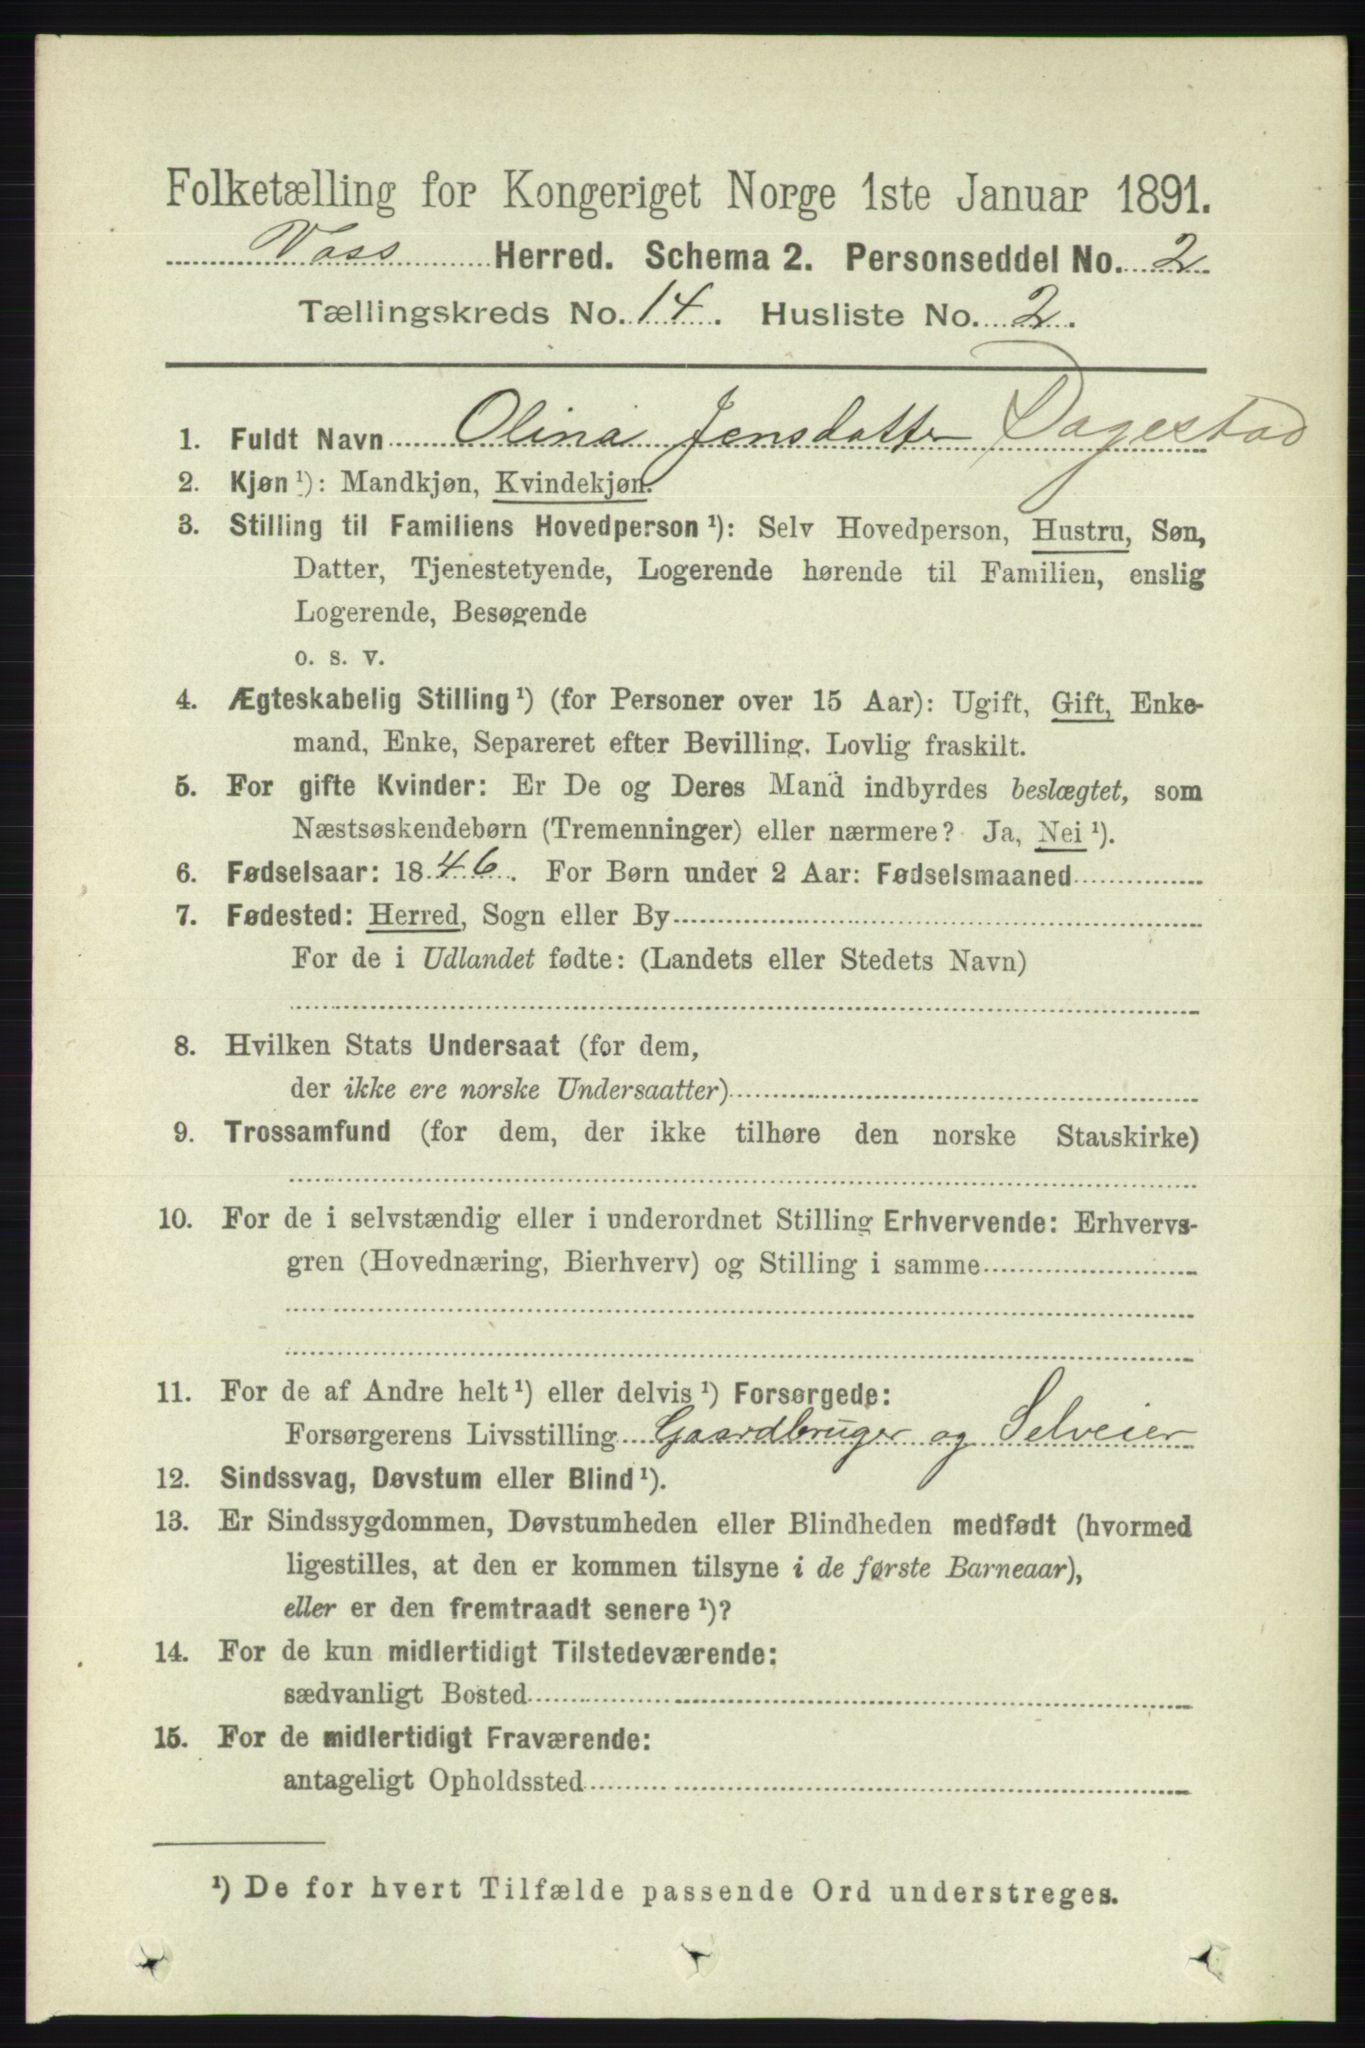 Folketælling for Kongeriget Norge 1ste Januar 1891.
Voss Herred. Schema 2. Personseddel No. 2
Tællingskreds No. 14. Husliste No. 2.
1. Fuldt Navn Olina Jensdatter Dagestad
2. Kjøn ¹): Mandkjøn, Kvindekjøn.
3. Stilling til Familiens Hovedperson ¹): Selv Hovedperson, Hustru, Søn,
Datter, Tjenestetyende, Logerende hørende til Familien, enslig
Logerende, Besøgende
o. s. v.
4. Ægteskabelig Stilling ¹) (for Personer over 15 Aar): Ugift, Gift, Enke-
mand, Enke, Separeret efter Bevilling. Lovlig fraskilt.
5. For gifte Kvinder: Er De og Deres Mand indbyrdes beslægtet, som
Næstsøskendebørn (Tremenninger) eller nærmere? Ja, Nei ¹).
6. Fødselsaar: 1846. For Børn under 2 Aar: Fødselsmaaned
7. Fødested: Herred, Sogn eller By
For de i Udlandet fødte: (Landets eller Stedets Navn)
8. Hvilken Stats Undersaat (for dem,
der ikke ere norske Undersaatter)
9. Trossamfund (for dem, der ikke tilhøre den norske Statskirke)
10. For de i selvstændig eller i underordnet Stilling Erhvervende: Erhvervs-
gren (Hovednæring, Bierhverv) og Stilling i samme
11. For de af Andre helt ¹) eller delvis ¹) Forsørgede:
Forsørgerens Livsstilling Gaardbruger og Selveier
12. Sindssvag, Døvstum eller Blind ¹).
13. Er Sindssygdommen, Døvstumheden eller Blindheden medfødt (hvormed
ligestilles, at den er kommen tilsyne i de første Barneaar),
eller er den fremtraadt senere ¹)?
14. For de kun midlertidigt Tilstedeværende:
sædvanligt Bosted
15. For de midlertidigt Fraværende:
antageligt Opholdssted
¹) De for hvert Tilfælde passende Ord understreges.